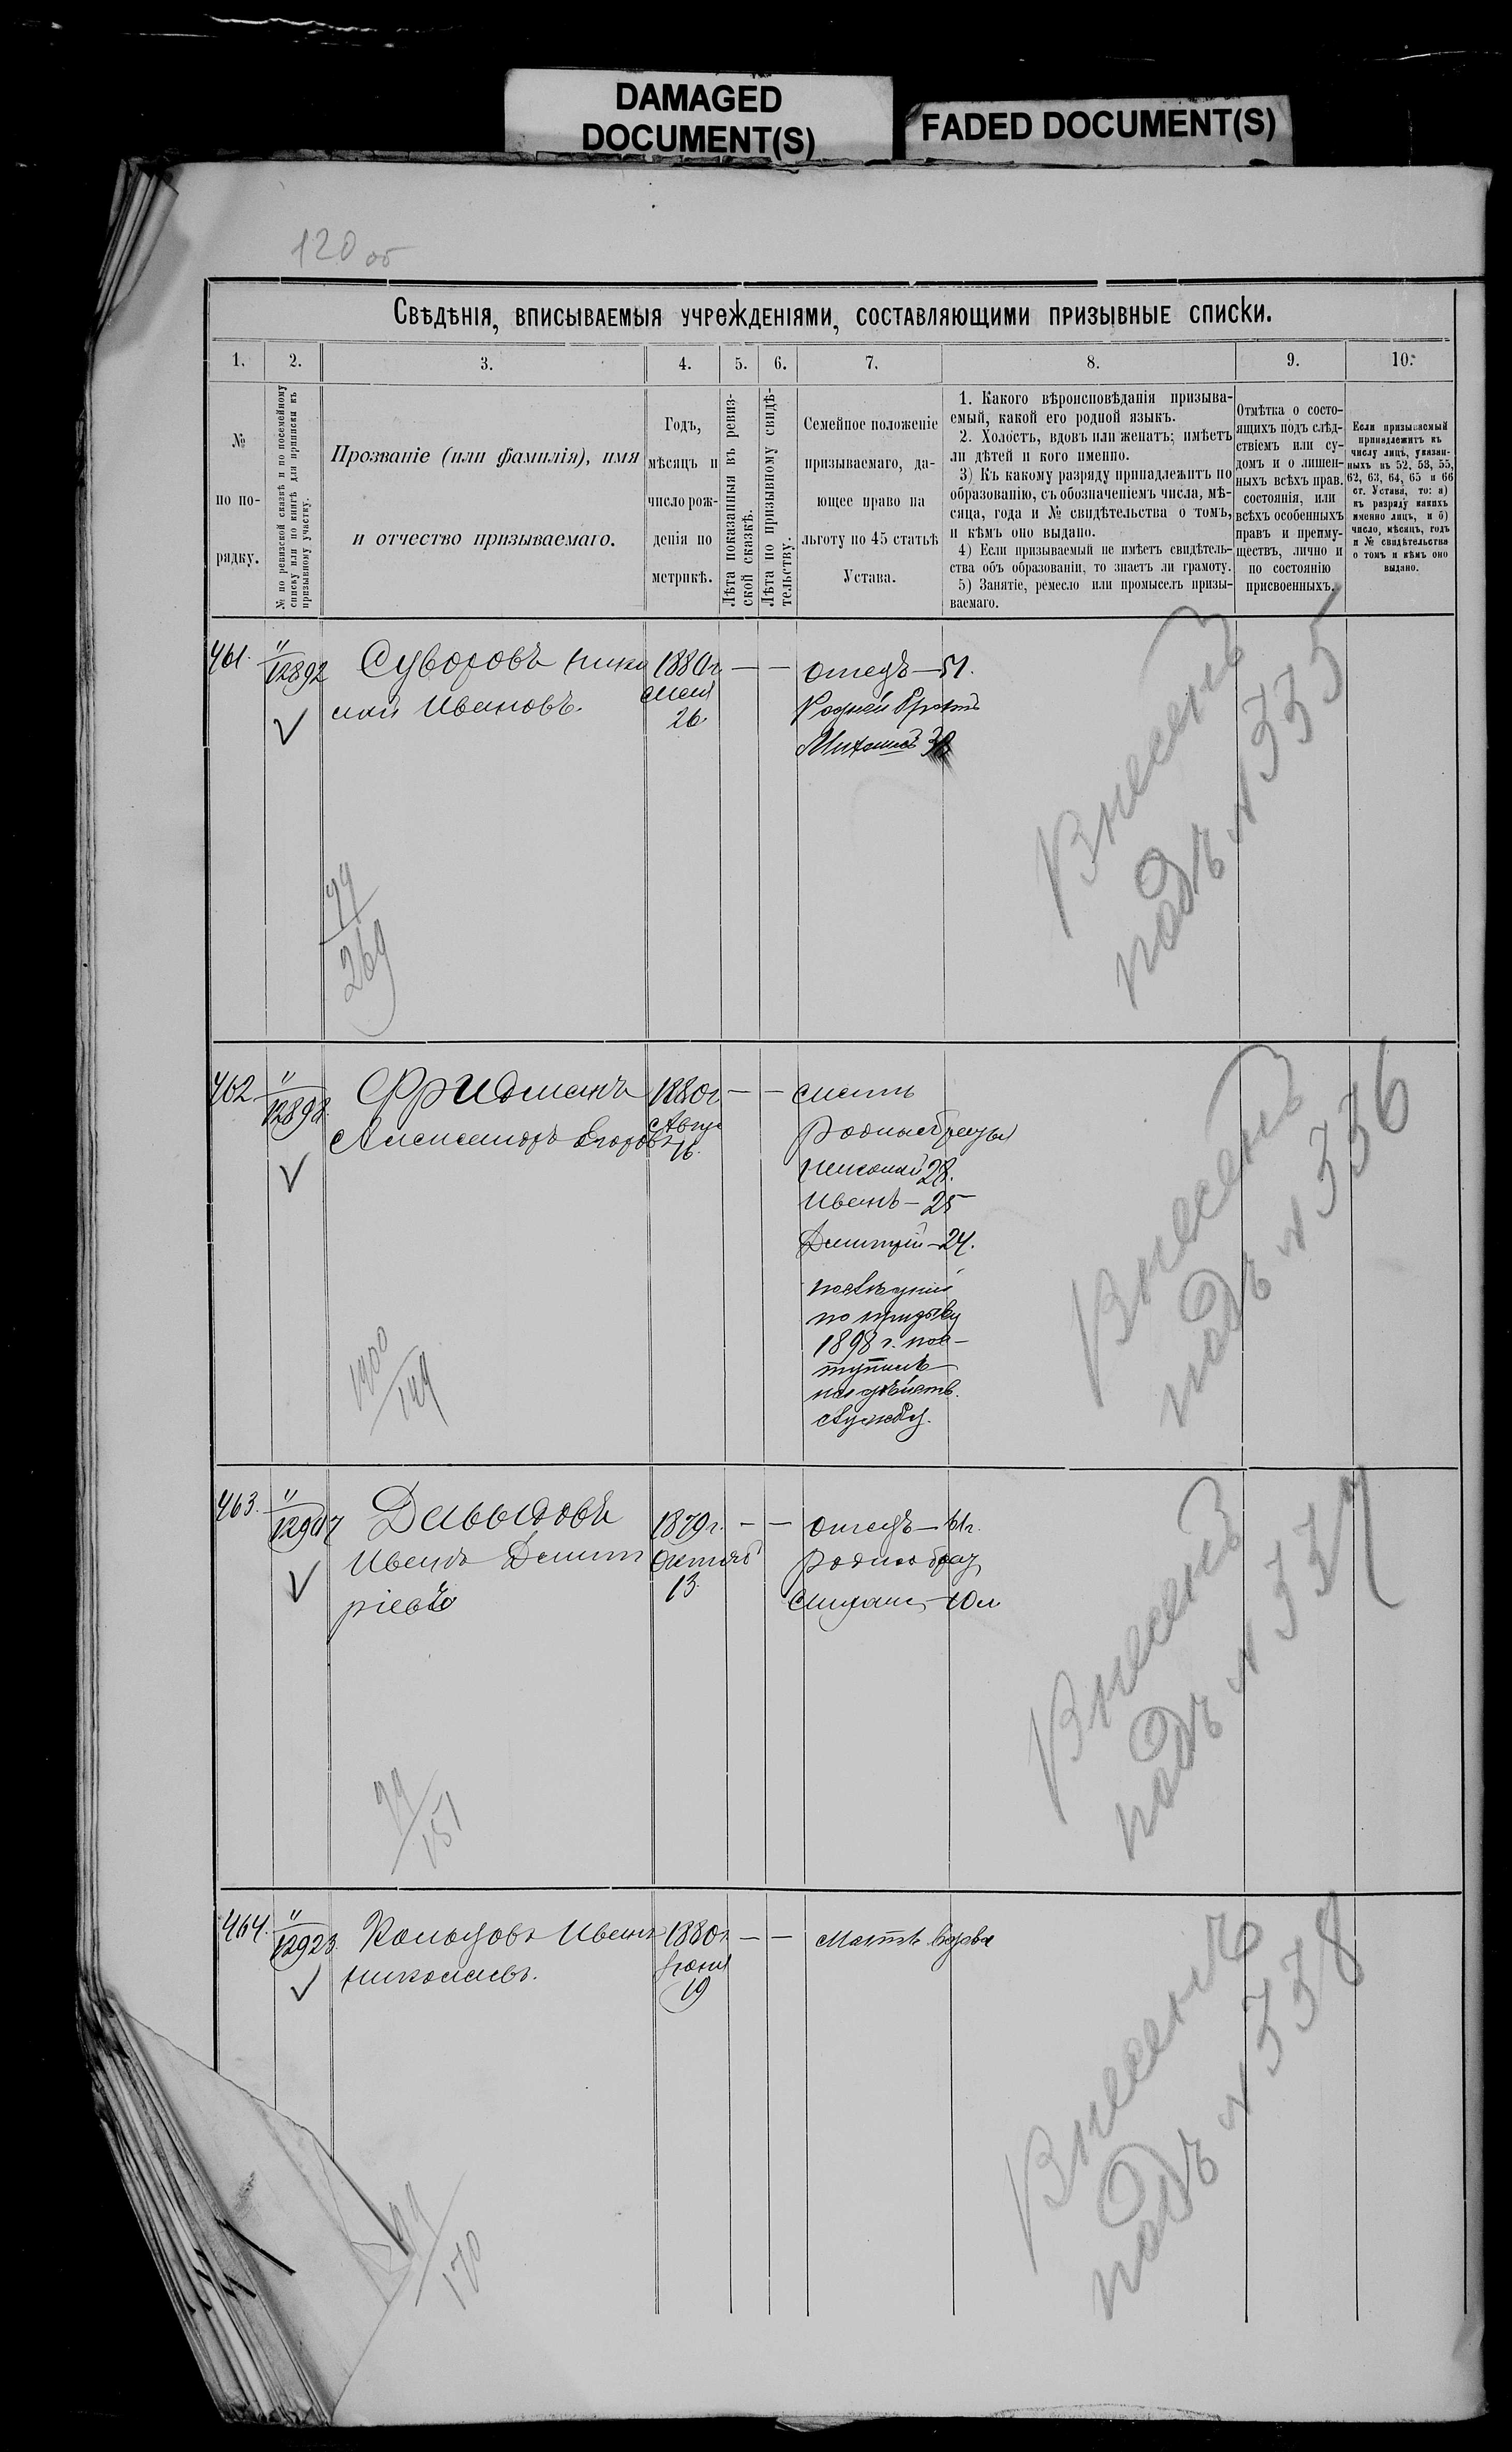 DAMAGED
DOCUMENT(S)
FADED DOCUMENT(S)
120 об
Свѣдѣнія, вписываемыя учрежденіями, составляющими призывные списки.
1.
2.
3.
4.
5.
6.
7.
8.
9.
10.
№
по по-
рядку.
№ по ревизской сказкѣ и по посемейному
списку или по книгѣ для приписки къ
призывному участку.
Прозваніе (или фамилія), имя
и отчество призываемаго.
Годъ,
мѣсяцъ и
число рож-
денія по
метрикѣ.
Лѣта показанныя въ ревиз-
ской сказкѣ.
Лѣта по призывному свидѣ-
тельству.
Семейное положеніе
призываемаго, да-
ющее право на
льготу по 45 статьѣ
Устава.
1. Какого вѣроисповѣданія призыва-
емый, какой его родной языкъ.
2. Холостъ, вдовъ или женатъ; имѣетъ
ли дѣтей и кого именно.
3) Къ какому разряду принадлежитъ по
образованію, съ обозначеніемъ числа, мѣ-
сяца, года и № свидѣтельства о томъ,
и кѣмъ оно выдано.
4) Если призываемый не имѣетъ свидѣтель-
ства объ образованіи, то знаетъ ли грамоту.
5) Занятіе, ремесло или промыселъ призы-
ваемаго.
Отмѣтка о состо-
ящихъ подъ слѣд-
ствіемъ или су-
домъ и о лишен-
ныхъ всѣхъ прав.
состоянія, или
всѣхъ особенныхъ
правъ и преиму-
ществъ, лично и
по состоянію
присвоенныхъ.
Если призываемый
принадлежитъ къ
числу лицъ, указан-
ныхъ въ 52, 53, 55,
62, 63, 64, 65 и 66
ст. Устава, то: а)
къ разряду какихъ
именно лицъ, и б)
число, мѣсяцъ, годъ
и № свидѣтельства
о томъ и кѣмъ оно
выдано.
461.
"
12892
Суворовъ Нико
лай Ивановъ.
1880 г.
Мая
26.
— —
отецъ — 51.
Родной братъ
Михаилъ
Внесенъ
подъ № 335
99
269
462
"
12898.
Фридманъ
Александръ Егоровъ
1880 г.
Авгус
16.
— —
мать
родные братья
Николай 28.
Иванъ — 25
Дмитрій — 24.
послѣдній
по призыву
1898 г. пос-
тупилъ
на дѣйств.
службу.
Внесенъ
подъ № 336
1900
149
463.
"
12907
Давыдовъ
Иванъ Дмит
ріевъ
1879 г.
Октяб
13.
— —
отецъ — 61 г.
родной брат
Михаил — 10 л
Внесенъ
подъ № 337
99
151
464.
"
12923.
Иванъ
Николаевъ.
1880 г.
Іюня
19
— —
Мать вдова
Внесенъ
подъ № 338
99
170